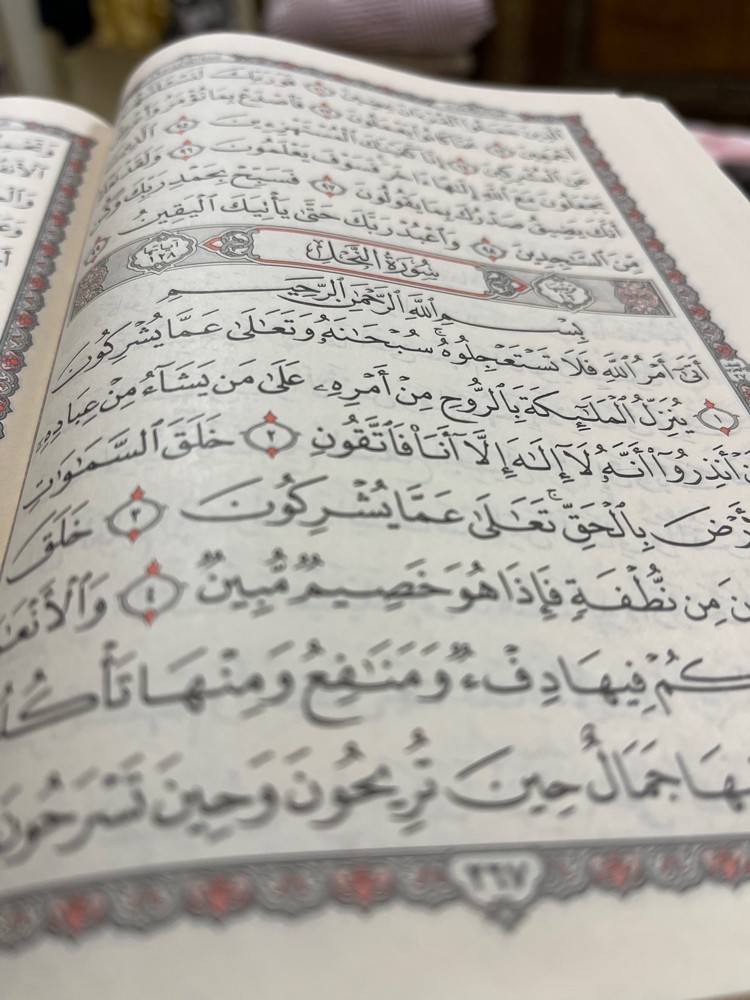 عَنِ ٱلْمُشْرِكِينَ ٩٤ إِنَّا كَفَيْنَٰكَ ٱلْمُسْتَهْزِءِينَ ٩٥ ٱلَّذِينَ
يَجْعَلُونَ مَعَ ٱللَّهِ إِلَٰهًا ءَاخَرَ فَسَوْفَ يَعْلَمُونَ ٩٦ وَلَقَدْ نَعْلَمُ
أَنَّكَ يَضِيقُ صَدْرُكَ بِمَا يَقُولُونَ ٩٧ فَسَبِّحْ بِحَمْدِ رَبِّكَ وَكُن
مِّنَ ٱلسَّٰجِدِينَ ٩٨ وَٱعْبُدْ رَبَّكَ حَتَّىٰ يَأْتِيَكَ ٱلْيَقِينُ ٩٩
سُورَةُ النَّحْلِ
آيَاتُهَا ١٢٨
بِسْمِ ٱللَّهِ ٱلرَّحْمَٰنِ ٱلرَّحِيمِ
أَتَىٰٓ أَمْرُ ٱللَّهِ فَلَا تَسْتَعْجِلُوهُ ۚ سُبْحَٰنَهُۥ وَتَعَٰلَىٰ عَمَّا يُشْرِكُونَ
١ يُنَزِّلُ ٱلْمَلَٰٓئِكَةَ بِٱلرُّوحِ مِنْ أَمْرِهِۦ عَلَىٰ مَن يَشَآءُ مِنْ عِبَادِهِۦٓ
أَنْ أَنذِرُوٓا۟ أَنَّهُۥ لَآ إِلَٰهَ إِلَّآ أَنَا۠ فَٱتَّقُونِ ٢ خَلَقَ ٱلسَّمَٰوَٰتِ
بِٱلْحَقِّ ۚ تَعَٰلَىٰ عَمَّا يُشْرِكُونَ ٣ خَلَقَ
مِن نُّطْفَةٍ فَإِذَا هُوَ خَصِيمٌ مُّبِينٌ ٤
فِيهَا دِفْءٌ وَمَنَٰفِعُ وَمِنْهَا
جَمَالٌ حِينَ تُرِيحُونَ وَحِينَ تَسْرَحُونَ
٢٦٧